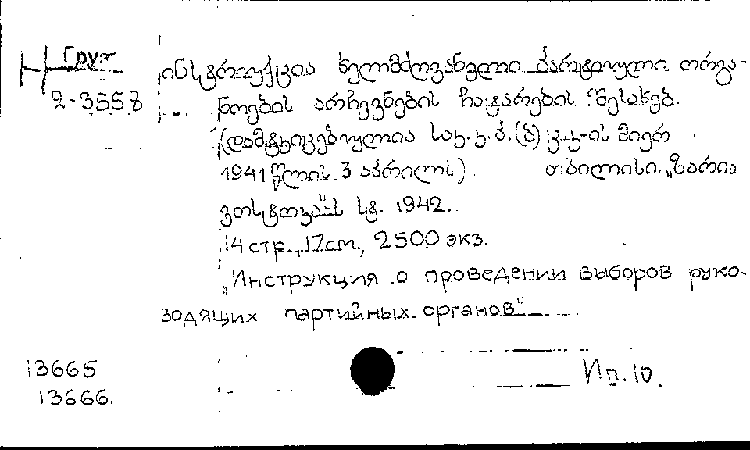 Груз
2-3558
ინსტრუქცია ხელმძღვანელი პარტიული ორგა-
ნოების არჩევნების ჩატარების შესახებ.
(დამტკიცებულია საკ.კ.პ.(ბ) ც.კ-ის მიერ
1941 წლის 3 აპრილს). თბილისი. „ზარია
ვოსტოკა"ს სტ. 1942.
14 стр., 17 cm, 2500 экз.
„Инструкция о проведении выборов руко-
водящих партийных органов"
13665
13666.
Ип. 10.